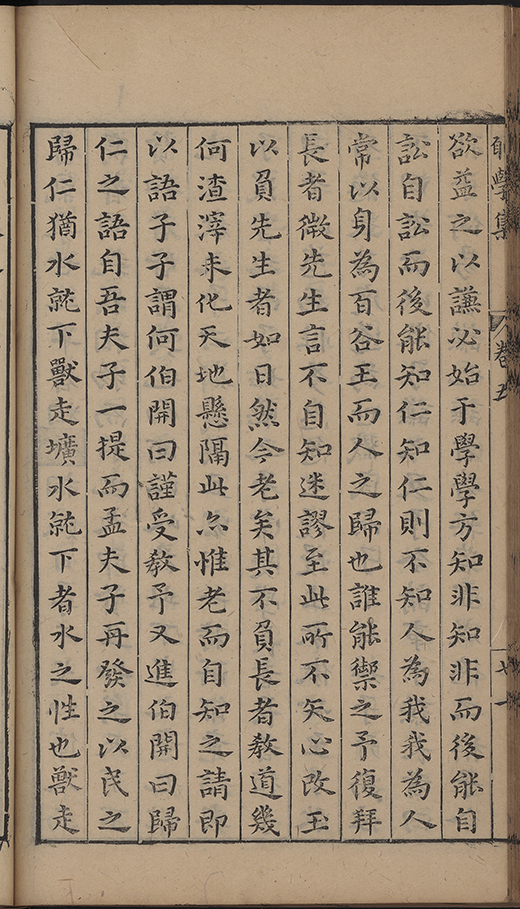 學集
卷五
欲益之以謙必始于學學方知非知非而後能自
訟自訟而後能知仁知仁則不知人為我我為人
常以身為百谷王而人之歸也誰能禦之予復拜
長者微先生言不自知迷謬至此所不矢心改玉
以負先生者如日然今老矣其不負長者教道幾
何渣滓未化天地懸隔此亦惟老而自知之請即
以語子子謂何伯開曰謹受教予又進伯開曰歸
仁之語自吾夫子一提而孟夫子再發之以民之
歸仁猶水就下獸走壙水就下者水之性也獸走